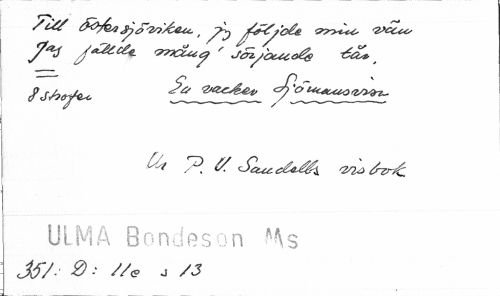 Till Östersjöviken, jg följde min vän
Jag fällde mång' sörjande tår.
8 strofer
En vacker Sjömansvisa
Ur P. V. Sandells visbok
ULMA Bondeson Ms
351: D: 11e s 13